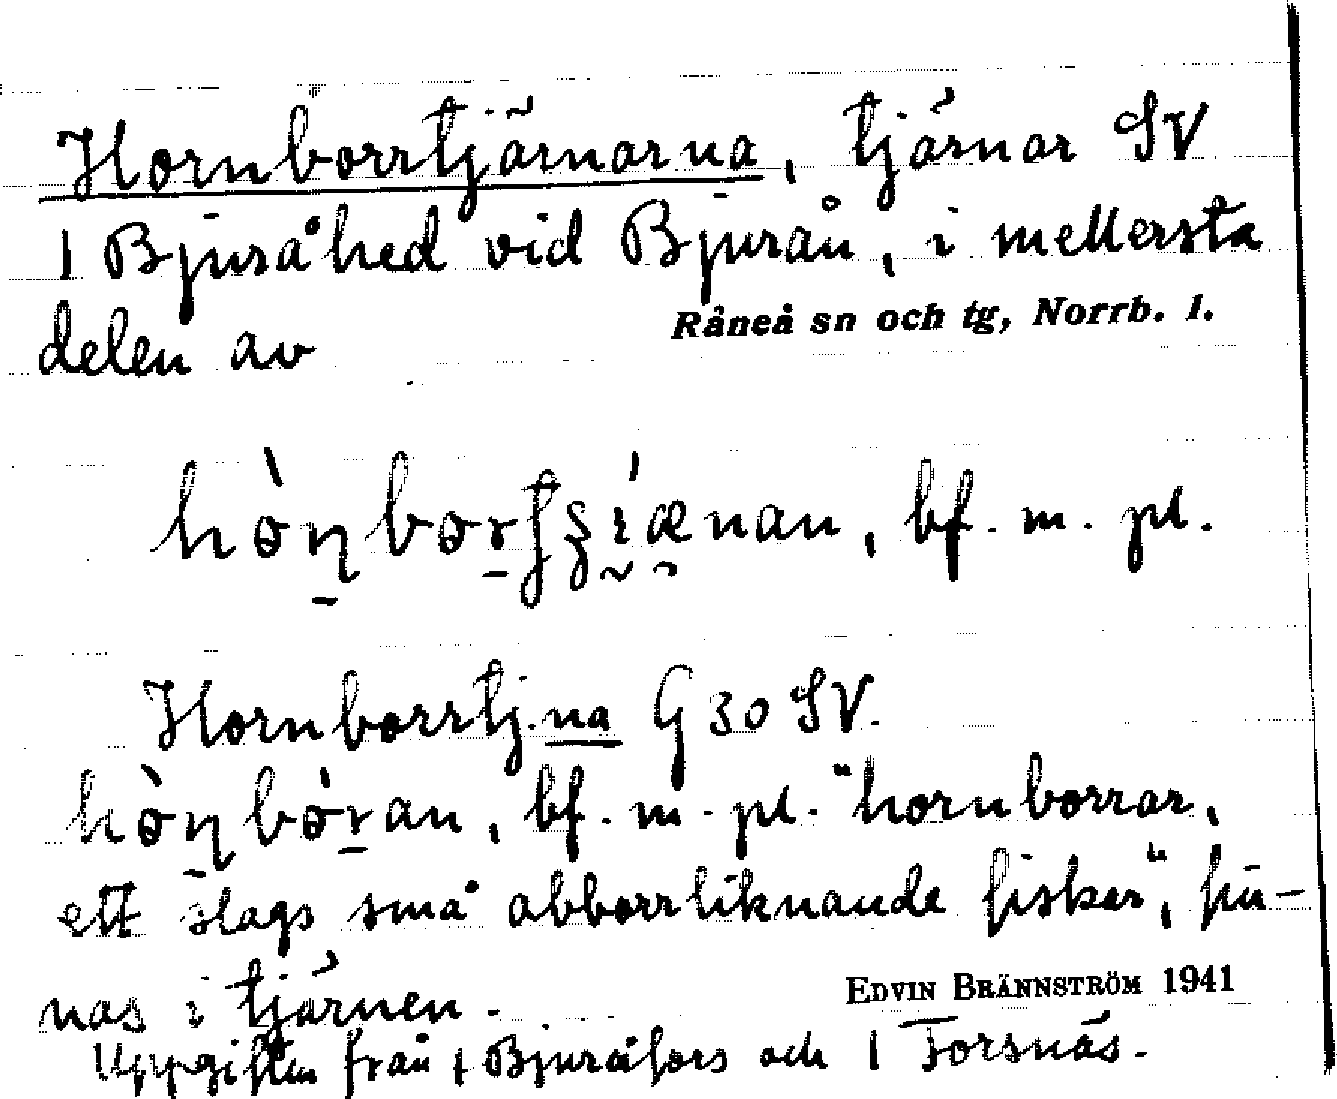 Hornborrtjärnarna, tjärnar SV
1 Bjuråhed vid Bjurån, i mellersta
delen av
Råneå sn och tg, Norrb. l.
bf. m. pl.
Hornborrtj.na G 30 SV.
bf. m. pl. "hornborrar,
ett slags små abborrliknande fiskar", fin-
nas i tjärnen.
EDVIN BRÄNNSTRÖM 1941
Uppgiften från 1 Bjuråfors och 1 Forsnäs.